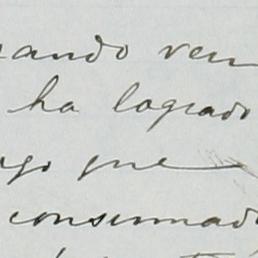 uando ven
ha logrado
ngo que
consumado